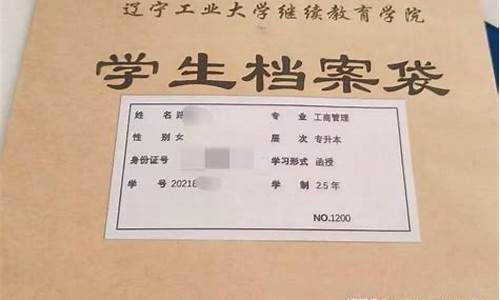 辽宁工业大学继续教育学院
学生档案袋
姓 名 路 专 业 工商管理
性 别 女 层 次 专升本
身份证号 学习形式 函授
学 号 20218 学 制 2.5 年
NO.1200